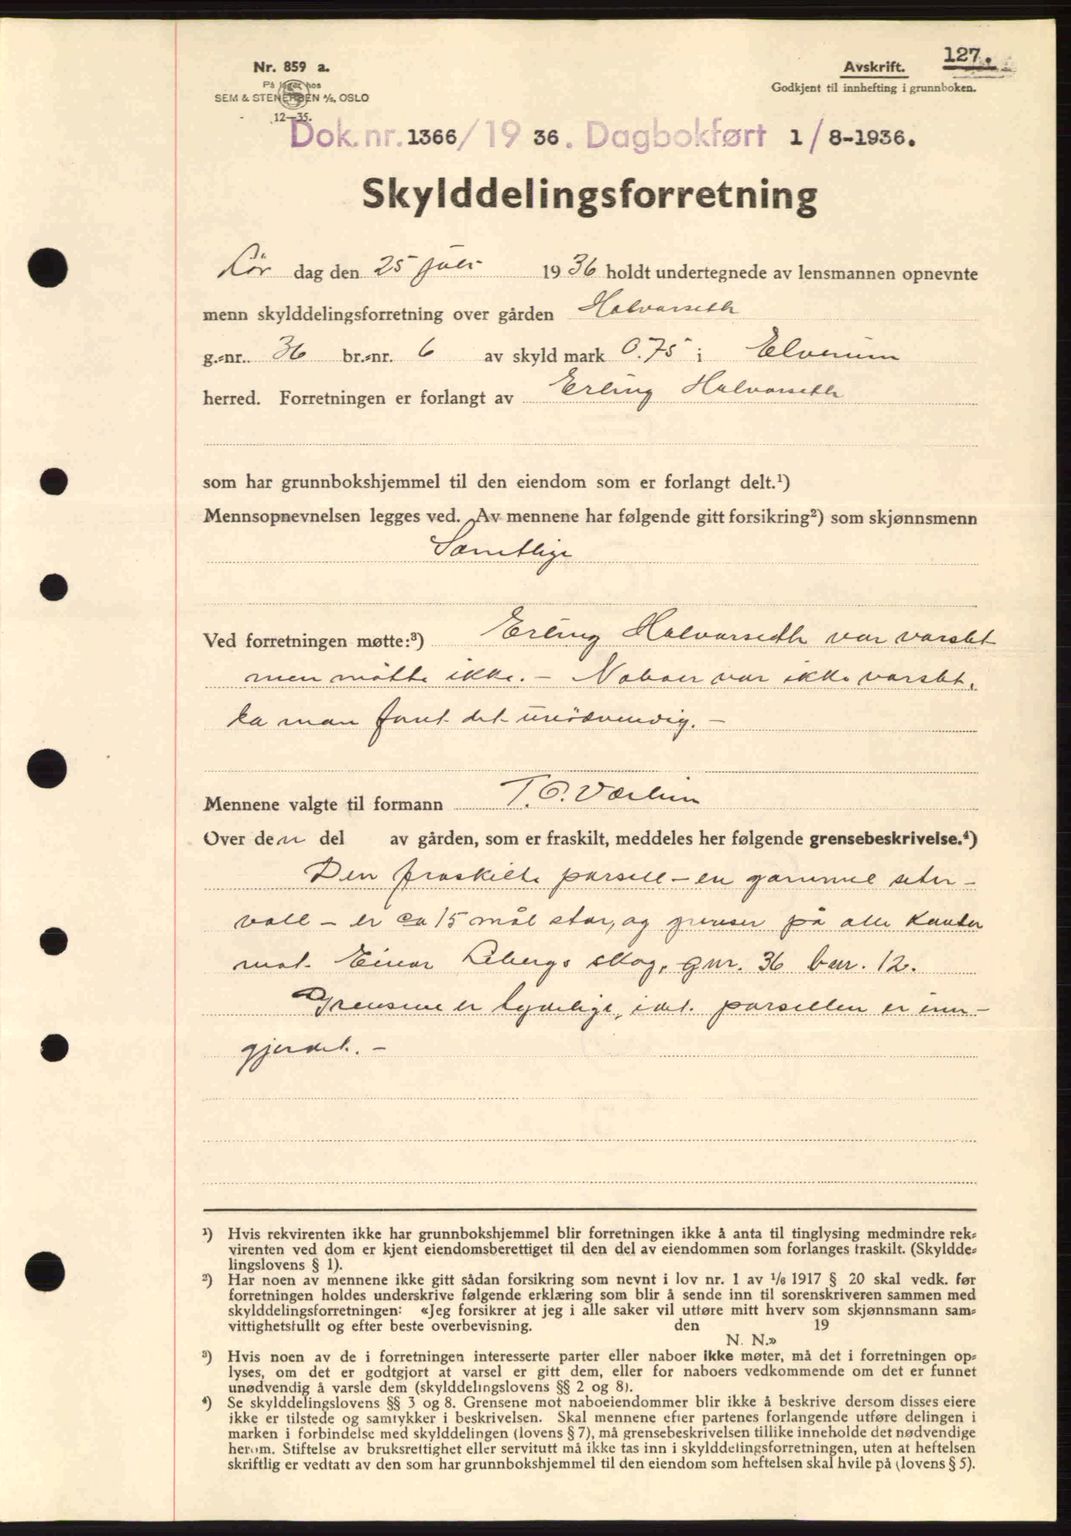 127.
Nr. 859 a.
På lager hos
SEM & STENERSEN A/S, OSLO
12—35.
Avskrift.
Godkjent til innhefting i grunnboken.
Dok. nr. 1366/1936. Dagbokført 1/8-1936.
Skylddelingsforretning
Lør dag den 25 juli 1936 holdt undertegnede av lensmannen opnevnte
menn skylddelingsforretning over gården Halvarseth
g.-nr. 36 br.-nr. 6 av skyld mark 0.75 i Elverum
herred. Forretningen er forlangt av Erling Halvarseth
som har grunnbokshjemmel til den eiendom som er forlangt delt.¹)
Mennsopnevnelsen legges ved. Av mennene har følgende gitt forsikring²) som skjønnsmenn
Samtlige
Ved forretningen møtte:³) Erling Halvarseth var varslet
men møtte ikke. – Naboer var ikke varslet,
da man fant det unødvendig. –
Mennene valgte til formann T. O. Værlien
Over den del av gården, som er fraskilt, meddeles her følgende grensebeskrivelse.⁴)
Den fraskilte parsell – en gammel seter-
voll – er ca 15 mål stor, og grenser på alle kanter
mot Einar Libergs skog, gnr. 36 bnr. 12.
Grensene er tydelige, idet parsellen er inn-
gjerdet. –
¹) Hvis rekvirenten ikke har grunnbokshjemmel blir forretningen ikke å anta til tinglysing medmindre rek-
virenten ved dom er kjent eiendomsberettiget til den del av eiendommen som forlanges fraskilt. (Skyldde-
lingslovens § 1).
²) Har noen av mennene ikke gitt sådan forsikring som nevnt i lov nr. 1 av 1/6 1917 § 20 skal vedk. før
forretningen holdes underskrive følgende erklæring som blir å sende inn til sorenskriveren sammen med
skylddelingsforretningen: «Jeg forsikrer at jeg i alle saker vil utføre mitt hverv som skjønnsmann sam-
vittighetsfullt og efter beste overbevisning. den 19
N. N.»
³) Hvis noen av de i forretningen interesserte parter eller naboer ikke møter, må det i forretningen op-
lyses, om det er godtgjort at varsel er gitt dem, eller for naboers vedkommende om det er funnet
unødvendig å varsle dem (skylddelingslovens §§ 2 og 8).
⁴) Se skylddelingslovens §§ 3 og 8. Grensene mot naboeiendommer blir ikke å beskrive dersom disses eiere
ikke er tilstede og samtykker i beskrivelsen. Skal mennene efter partenes forlangende utføre delingen i
marken i forbindelse med skylddelingen (lovens § 7), må grensebeskrivelsen tillike inneholde det nødvendige
herom. Stiftelse av bruksrettighet eller servitutt må ikke tas inn i skylddelingsforretningen, uten at heftelsen
skriftlig er vedtatt av den som har grunnbokshjemmel til den eiendom som heftelsen skal hvile på (lovens § 5).